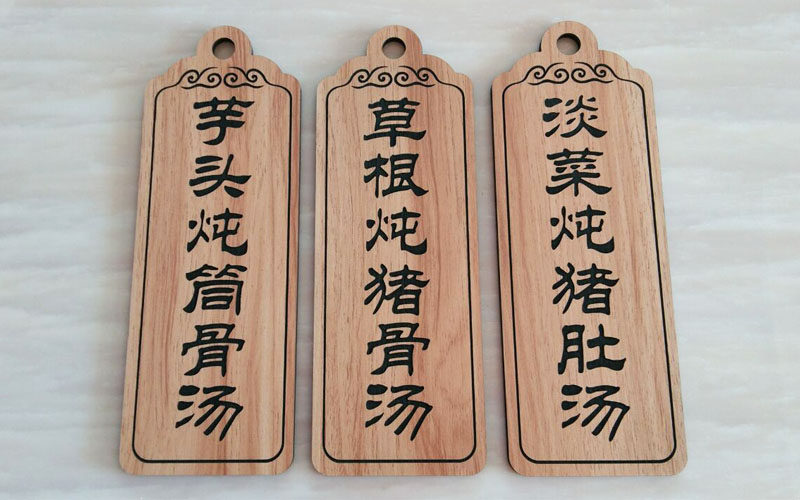 芋头炖筒骨汤
草根炖猪骨汤
淡菜炖猪肚汤